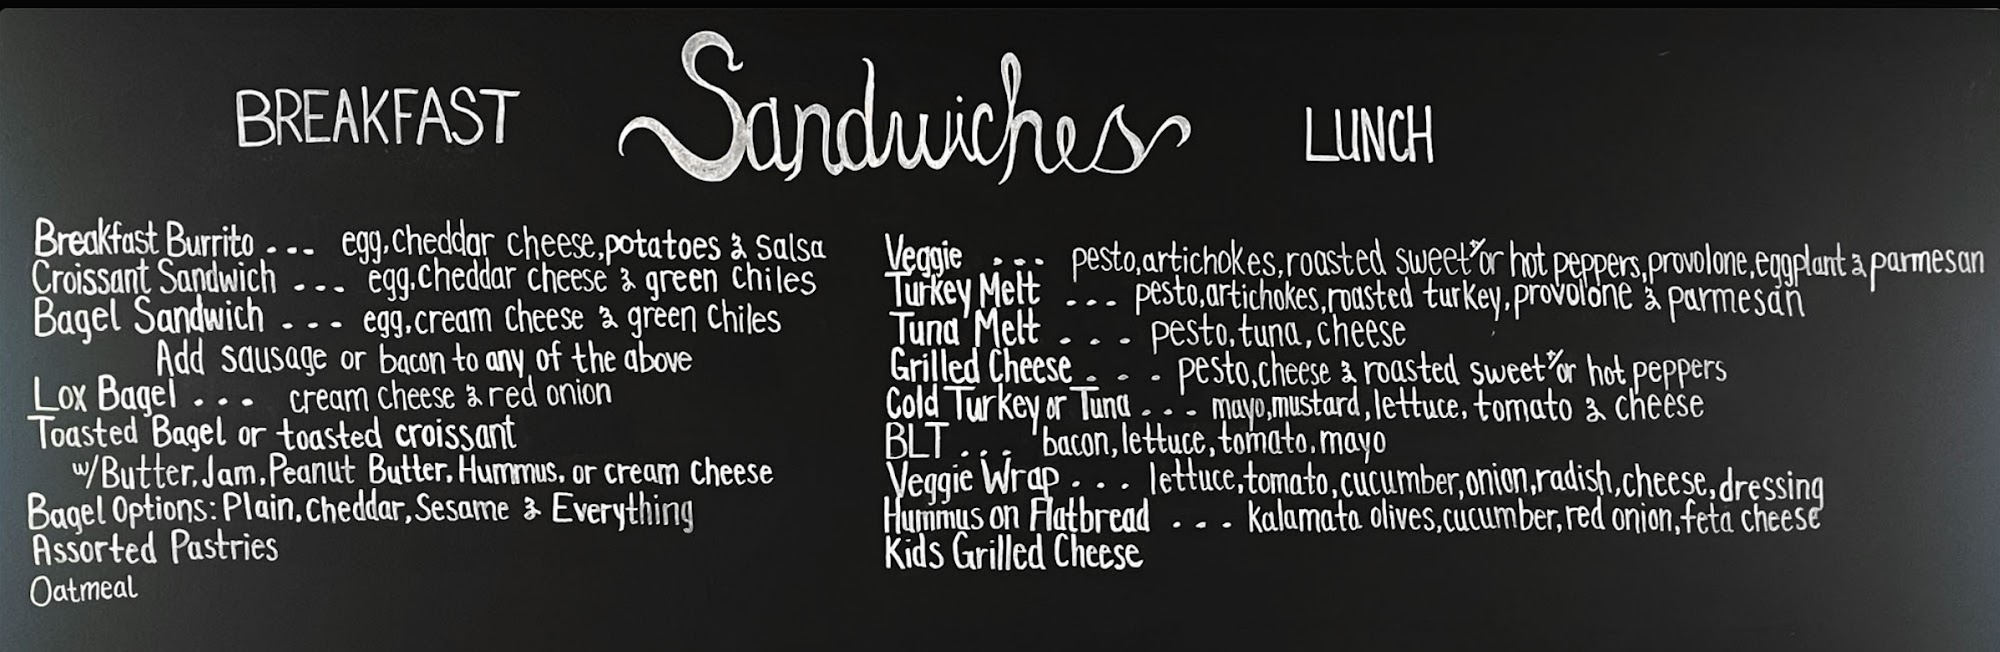 Sandwiches
BREAKFAST
Breakfast Burrito ... egg, cheddar cheese, potatoes & salsa
Croissant Sandwich ... egg, cheddar cheese & green chiles
Bagel Sandwich ... egg, cream cheese & green chiles
Add sausage or bacon to any of the above
Lox Bagel ... cream cheese & red onion
Toasted Bagel or toasted croissant
w/ Butter, Jam, Peanut Butter, Hummus, or cream cheese
Bagel Options: Plain, cheddar, Sesame & Everything
Assorted Pastries
Oatmeal
LUNCH
Veggie ... pesto, artichokes, roasted sweet &/or hot peppers, provolone, eggplant & parmesan
Turkey Melt ... pesto, artichokes, roasted turkey, provolone & parmesan
Tuna Melt ... pesto, tuna, cheese
Grilled Cheese ... pesto, cheese & roasted sweet &/or hot peppers
Cold Turkey or Tuna ... mayo, mustard, lettuce, tomato & cheese
BLT ... bacon, lettuce, tomato, mayo
Veggie Wrap ... lettuce, tomato, cucumber, onion, radish, cheese, dressing
Hummus on Flatbread ... kalamata olives, cucumber, red onion, feta cheese
Kids Grilled Cheese